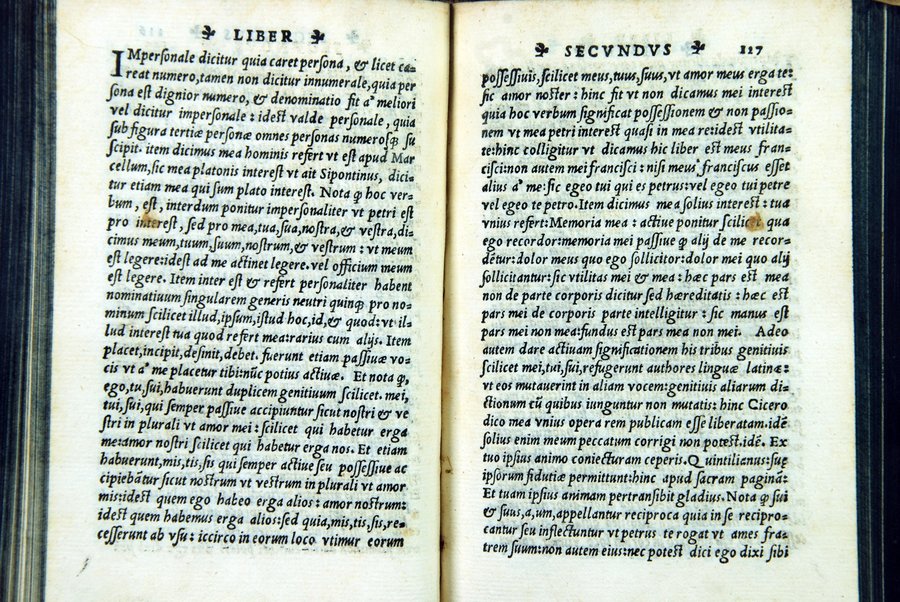 LIBER
IMpersonale dicitur quia caret persona, & licet ca=
reat numero, tamen non dicitur innumerale, quia per
sona est dignior numero, & denominatio fit a' meliori
vel dicitur impersonale: idest valde personale, quia
sub figura tertiæ personæ omnes personas numerosq; su
scipit. item dicimus mea hominis refert vt est apud Mar
cellum, sic mea platonis interest vt ait Sipontinus, dici=
tur etiam mea qui sum plato interest. Nota ꝙ hoc ver=
bum, est, interdum ponitur impersonaliter vt petri est
pro interest, sed pro mea, tua, sua, nostra, & vestra, di=
cimus meum, tuum, suum, nostrum, & vestrum: vt meum
est legere: idest ad me actinet legere. vel officium meum
est legere. Item inter est & refert personaliter habent
nominatiuum singularem generis neutri quinq; pro no=
minum scilicet illud, ipsum, istud hoc, id, & quod: vt il=
lud interest tua quod refert mea: rarius cum alijs. Item
placet, incipit, desinit, debet. fuerunt etiam passiuæ vo=
cis vt a' me placetur tibi: nūc potius actiuæ. Et nota ꝙ,
ego, tu, sui, habuerunt duplicem genitiuum scilicet. mei,
tui, sui, qui semper passiue accipiuntur sicut nostri & ve
stri in plurali vt amor mei: scilicet qui habetur erga
me: amor nostri scilicet qui habetur erga nos. Et etiam
habuerunt, mis, tis, sis qui semper actiue seu possessiue ac
cipiebātur sicut nostrum vt vestrum in plurali vt amor
mis: idest quem ego habeo erga alios: amor nostrum:
idest quem habemus erga alios: sed quia, mis, tis, sis, re=
cesserunt ab vsu: iccirco in eorum loco vtimur eorum
SECVNDVS 117
possessiuis, scilicet meus, tuus, suus, vt amor meus erga te:
sic amor noster: hinc fit vt non dicamus mei interest
quia hoc verbum significat possessionem & non passio=
nem vt mea petri interest quasi in mea re: idest vtilita=
te: hinc colligitur vt dicamus hic liber est meus fran=
cisci: non autem mei francisci: nisi meus franciscus esset
alius a' me: sic egeo tui qui es petrus: vel egeo tui petre
vel egeo te petro. Item dicimus mea solius interest: tua
vnius refert: Memoria mea: actiue ponitur scilicet qua
ego recordor: memoria mei passiue ꝙ alij de me recor=
dētur: dolor meus quo ego sollicitor: dolor mei quo alij
sollicitantur: sic vtilitas mei & mea: hæc pars est mea
non de parte corporis dicitur sed hæreditatis: hæc est
pars mei de corporis parte intelligitur: sic manus est
pars mei non mea: fundus est pars mea non mei. Adeo
autem dare actiuam significationem his tribus genitiuis
scilicet mei, tui, sui, refugerunt authores linguæ latinæ:
vt eos mutauerint in aliam vocem: genitiuis aliarum di=
ctionum cū quibus iunguntur non mutatis: hinc Cicero
dico mea vnius opera rem publicam esse liberatam. idē
solius enim meum peccatum corrigi non potest. idē. Ex
tuo ipsius animo coniecturam ceperis. Quintilianus: suę
ipsorum fidutiæ permittunt: hinc apud sacram pagina:
Et tuam ipsius animam pertransibit gladius. Nota ꝙ sui
& suus, a, um, appellantur reciproca quia in se recipro=
cantur seu inflectuntur vt petrus te rogat vt ames fra=
trem suum: non autem eius: nec potest dici ego dixi sibi